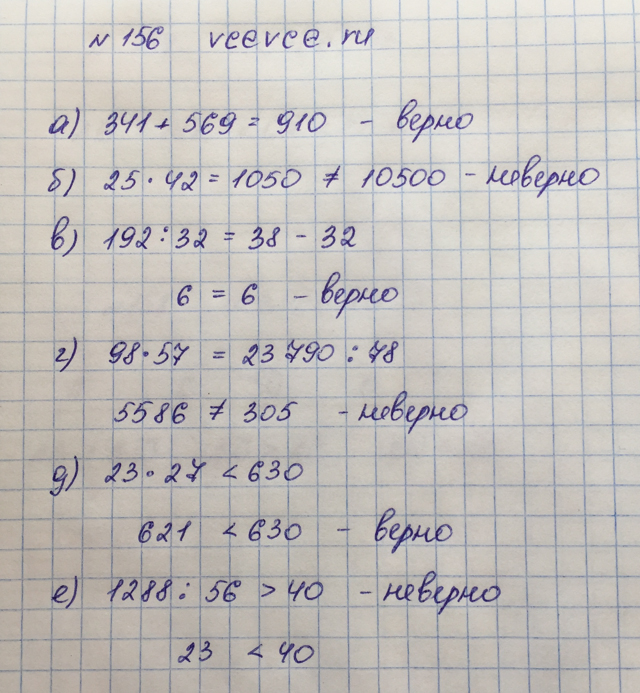 № 156 vcevce.ru
а) 341 + 569 = 910 - верно
б) 25 · 42 = 1050 ≠ 10500 - неверно
в) 192 : 32 = 38 - 32
6 = 6 - верно
г) 98 · 57 = 23 790 : 78
5586 ≠ 305 - неверно
д) 23 · 27 < 630
621 < 630 - верно
е) 1288 : 56 > 40 - неверно
23 < 40